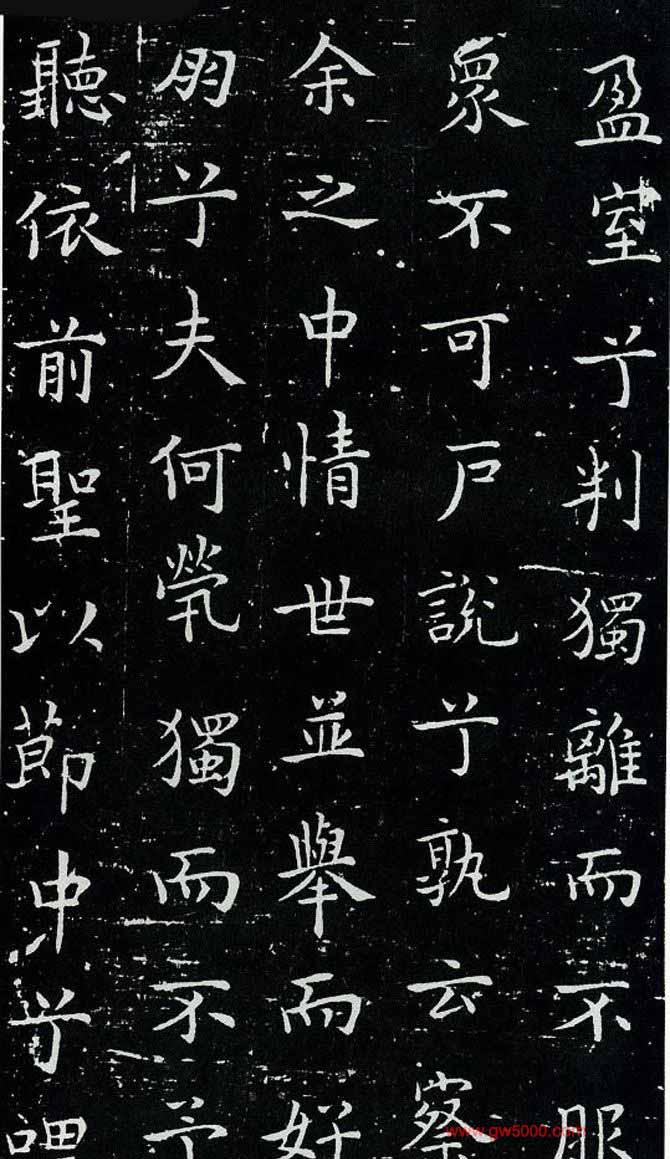 盈室兮判獨離而不服
衆不可戶說兮孰云察
余之中情世並舉而好
朋兮夫何煢獨而不予
聽依前聖以節中兮喟
www.gw5000.com